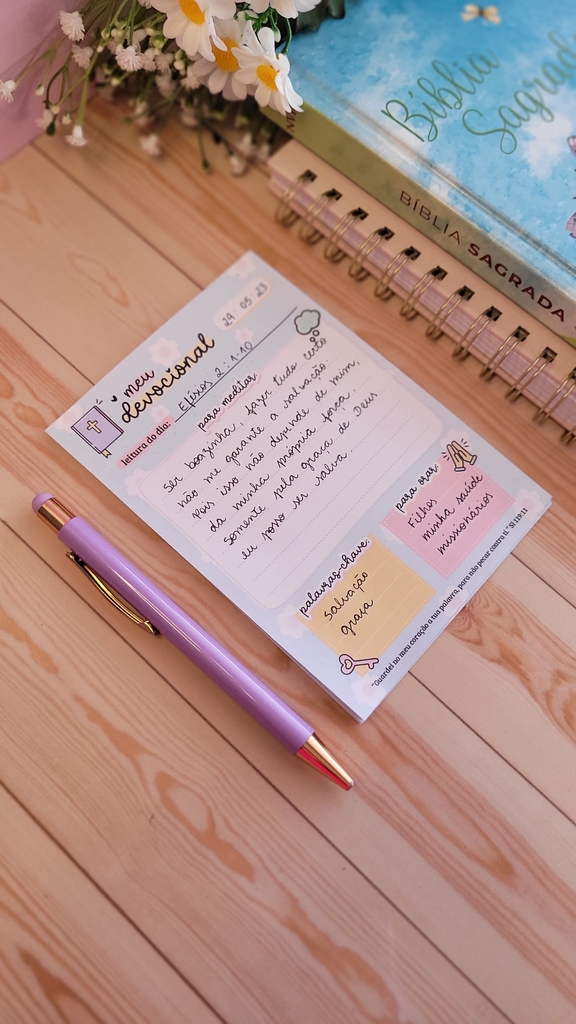 Bíblia
Sagrada
BÍBLIA SAGRADA
29 05 23
meu
devocional
leitura do dia:
Efésios 2:1-10
para meditar
Ser boazinha, fazer tudo certo
não me garante a salvação.
Pois isso não depende de mim,
da minha própria força...
Somente pela graça de Deus
eu posso ser salva.
para orar
Filhos
minha saúde
missionários
palavras-chave:
Salvação
graça
"Guardei no meu coração a tua palavra, para não pecar contra ti." Sl 119:11